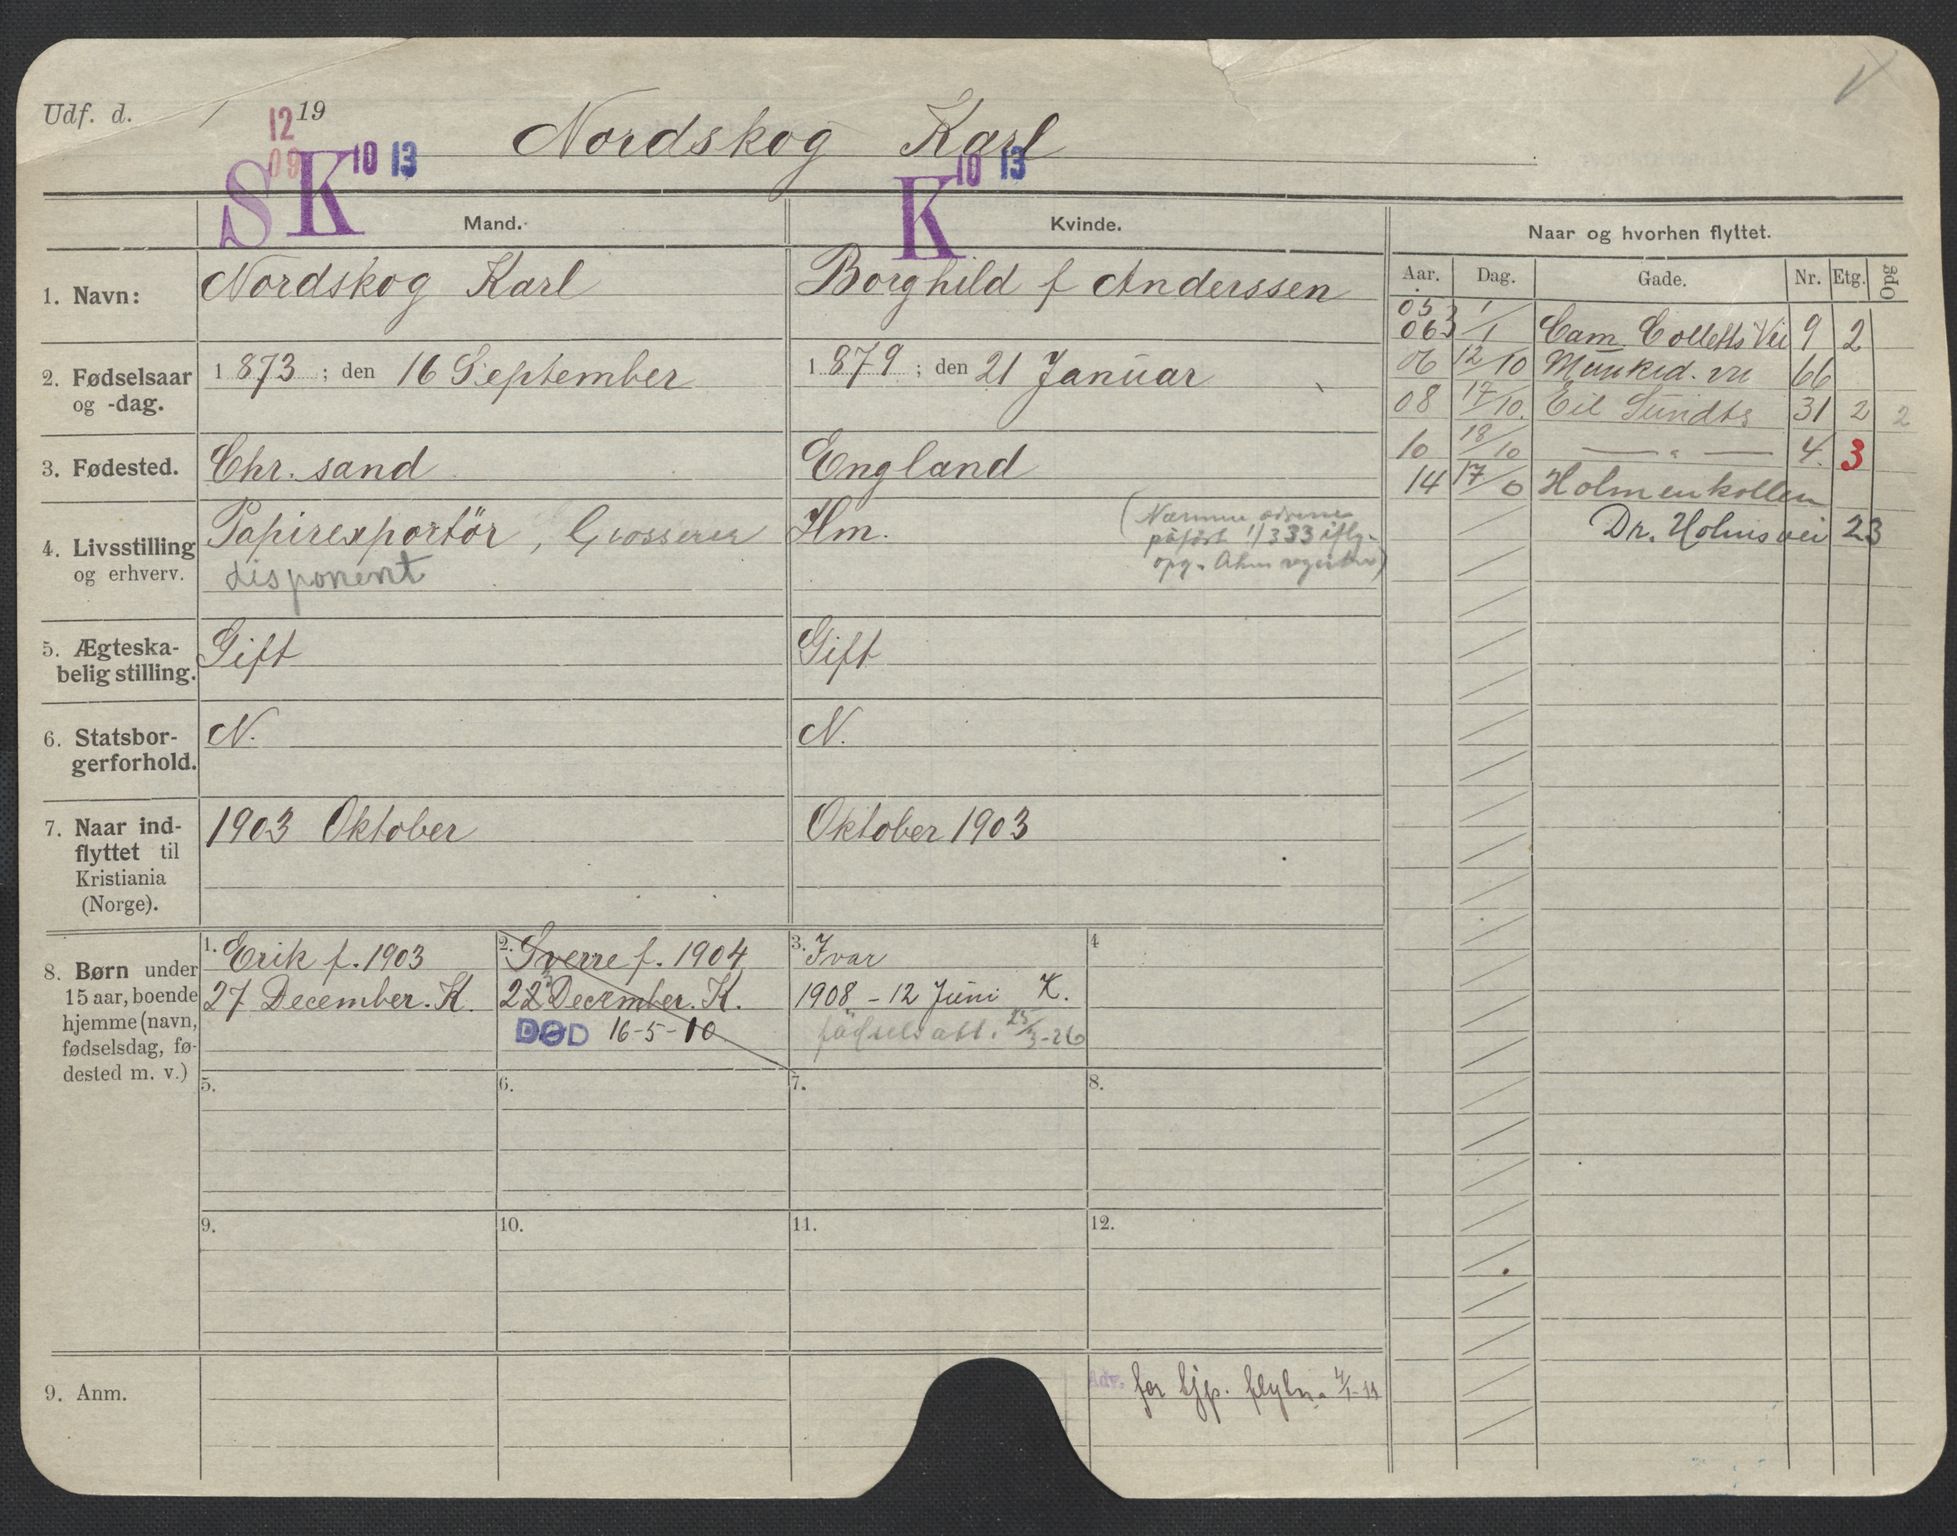 Udf. d. / 19
12
09
Nordskog Karl
SK 10 13
K 10 13
Mand.
Kvinde.
Naar og hvorhen flyttet.
Aar. Dag. Gade. Nr. Etg. Opg
1. Navn:
Nordskog Karl
Borghild f Anderssen
2. Fødselsaar og -dag.
1873 ; den 16 September
1879 ; den 21 Januar
3. Fødested.
Chr. sand
England
4. Livsstilling og erhverv.
Papirexportør, Grosserer
disponent
Hm.
(Nærmere adresse
påført 1/3 33 iflg.
opg.
5. Ægteska-
belig stilling.
Gift
Gift
6. Statsbor-
gerforhold.
N.
N.
7. Naar ind-
flyttet til
Kristiania
(Norge).
1903 Oktober
Oktober 1903
05 1/
063 /1 Cam. Colletts Vei 9 2
06 12/10 Munked. vei 66
08 17/10. Eil Sundts 31 2 2
10 18/10 — " — 4. 3
14 17/10 Holmenkollen
Dr. Holms vei 23
8. Børn under
15 aar, boende
hjemme (navn,
fødselsdag, fø-
dested m. v.)
1. Erik f. 1903
27 December. K.
2. Sverre f. 1904
22 December. K.
DØD 16-5-10
3. Ivar
1908 - 12 Juni K.
fødselsatt. 25/3-26
4
5.
6.
7.
8.
9.
10.
11.
12.
9. Anm.
Adv. for